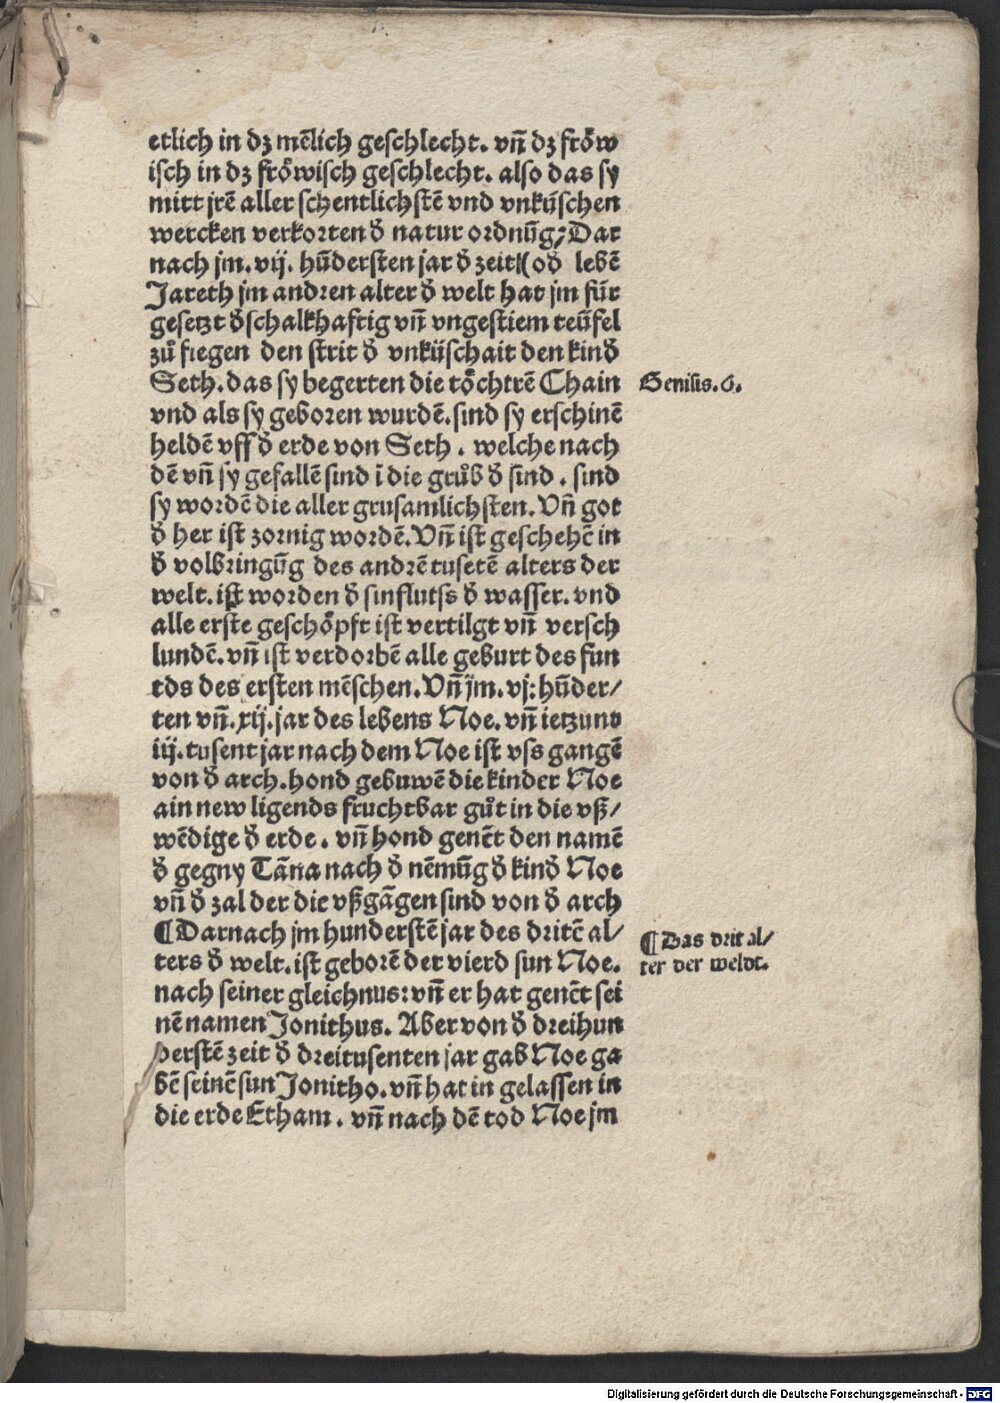 etlich in dz mēlich geschlecht. vn̄ dz fröw
isch in dz fröwisch geschlecht. also das sy
mitt jrē aller schentlichstē vnd vnküschen
wercken verkorten đ natur ordnūg; Dar
nach jm. vij. hūdersten jar đ zeit (ođ lebē
Jareth jm andren alter đ welt hat jm für
gesetzt đ schalkhaftig vn̄ vngestiem teüfel
zů fiegen den strit đ vnküschait den kinđ
Seth. das sy begerten die töchtrē Chain
Genisis. 6.
vnd als sy geboren wurdē. sind sy erschinē
heldē vff đ erde von Seth. welche nach
dē vn̄ sy gefallē sind ī die grůb đ sind. sind
sy wordē die aller grusamlichsten. Vn̄ got
đ her ist zornig wordē. Vn̄ ist geschehē in
đ volbringūg des andrē tusetē alters der
welt. ist worden đ sinflutss đ wasser. vnd
alle erste geschöpft ist vertilgt vn̄ versch
lundē. vn̄ ist verdorbē alle geburt des fun
tds des ersten mēschen. Vn̄ jm. vj: hūder/
ten vn̄. xij. jar des lebens Noe. vn̄ ietzund
iij. tusent jar nach dem Noe ist vss gangē
von đ arch. hond gebuwē die kinder Noe
ain new ligends fruchtbar gůt in die vß/
wēdige đ erde. vn̄ hond genēt den namē
đ gegny Tāna nach đ nēmūg đ kinđ Noe
vn̄ đ zal der die vßgāgen sind von đ arch
¶ Darnach jm hunderstē jar des dritē al/
¶ Das drit al/
ter der weldt.
ters đ welt. ist geborē der vierd sun Noe.
nach seiner gleichnus: vn̄ er hat genēt sei
nē namen Jonithus. Aber von đ dreihun
derstē zeit đ dreitusenten jar gab Noe ga
bē seinē sun Jonitho. vn̄ hat in gelassen in
die erde Etham. vn̄ nach dē tod Noe jm
Digitalisierung gefördert durch die Deutsche Forschungsgemeinschaft - DFG